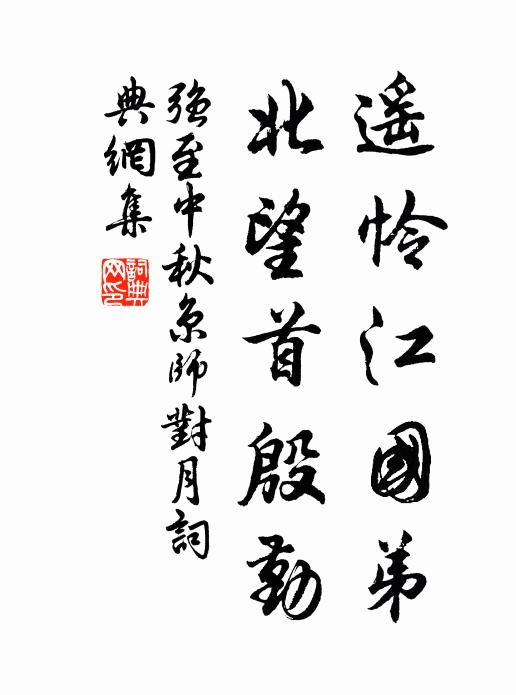 遥怜江國弟
北望首殷勤
強至中秋京師對月詞
典網集
詞典網印